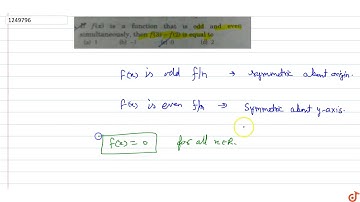 1249796
If f(x) is a function that is odd and even
simultaneously, then f(3) - f(2) is equal to
(a) 1 (b) -1 (c) 0 (d) 2
f(x) is odd f/n → symmetric about origin.
f(x) is even f/n → Symmetric about y-axis.
f(x) = 0 for all x∈R.
doubtnut